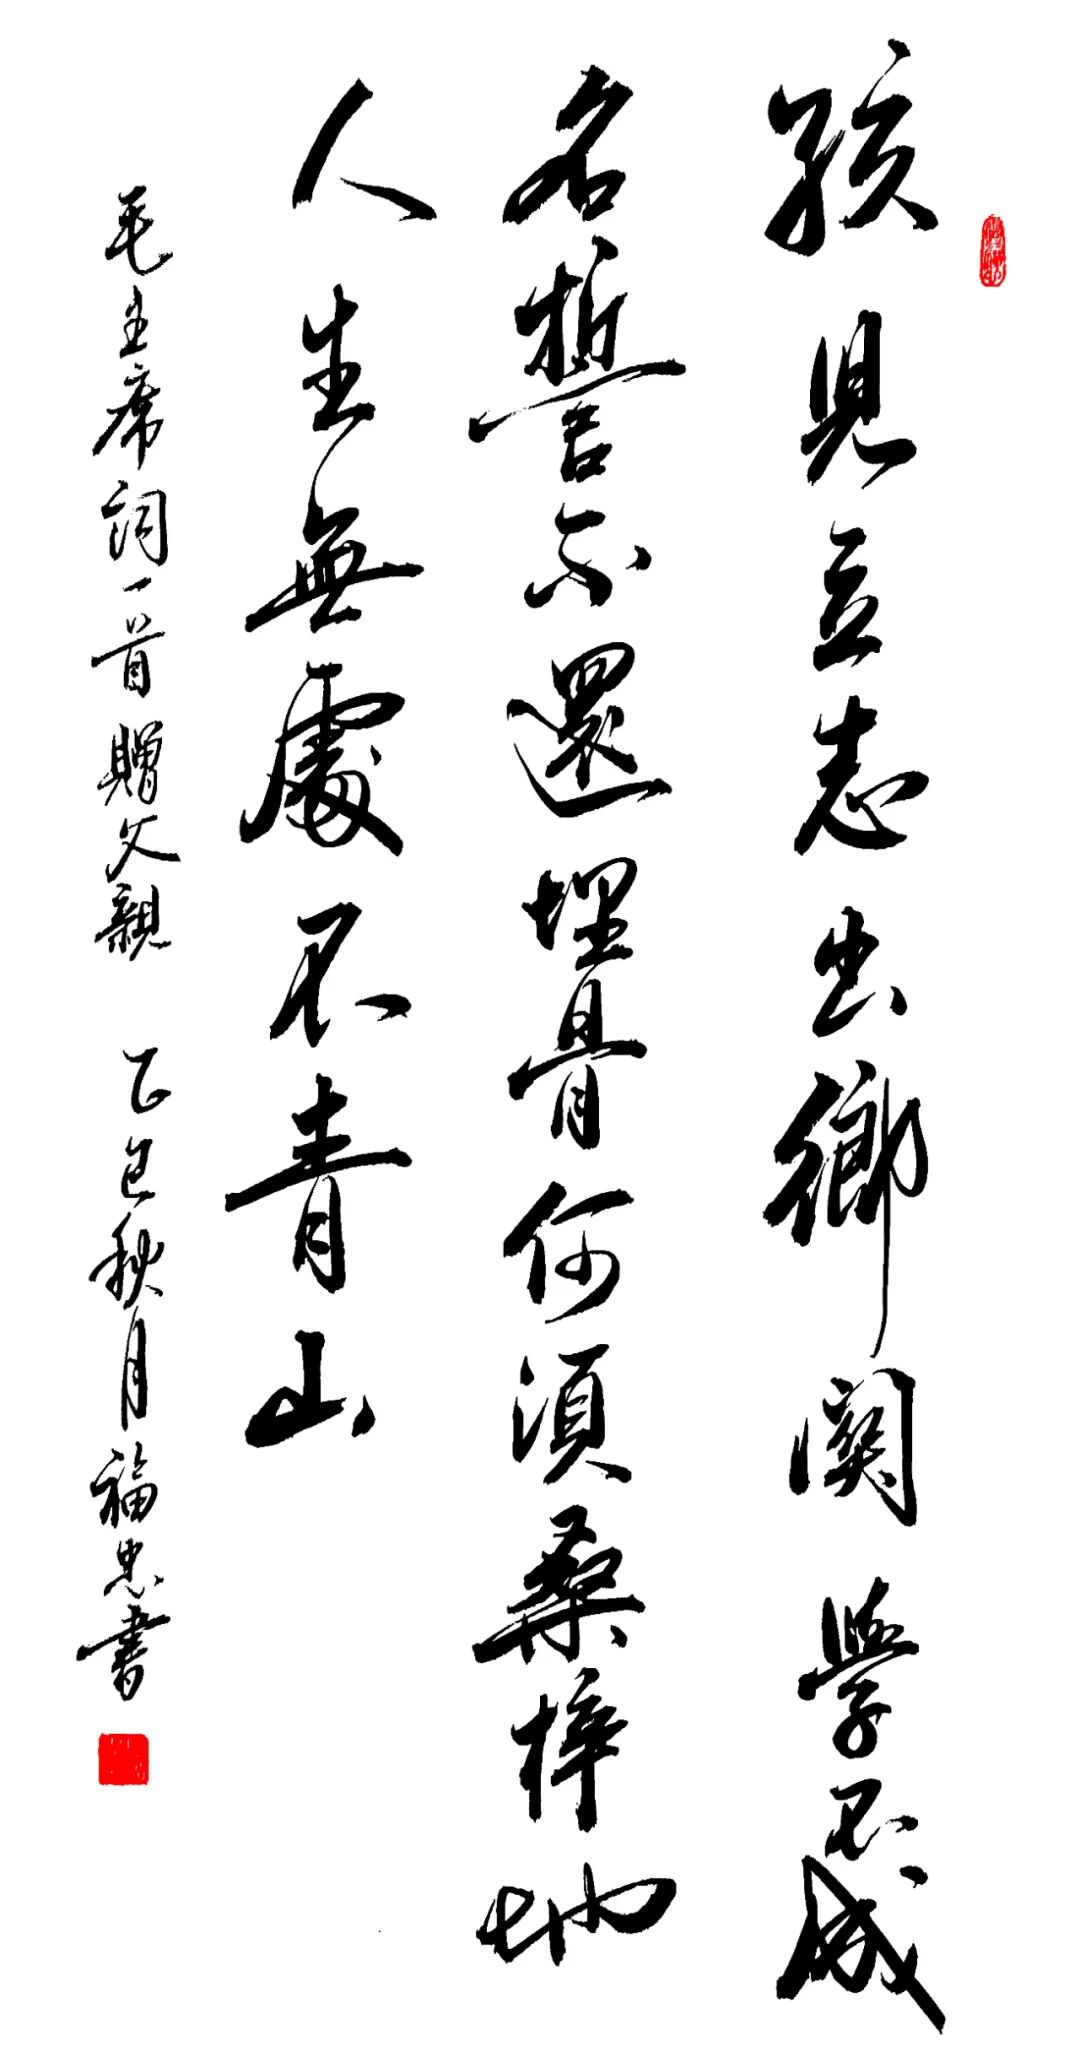 孩兒立志出鄉関學不成
名誓不還埋骨何須桑梓地
人生無處不青山
毛主席詞一首贈父親 乙巳秋月福忠書